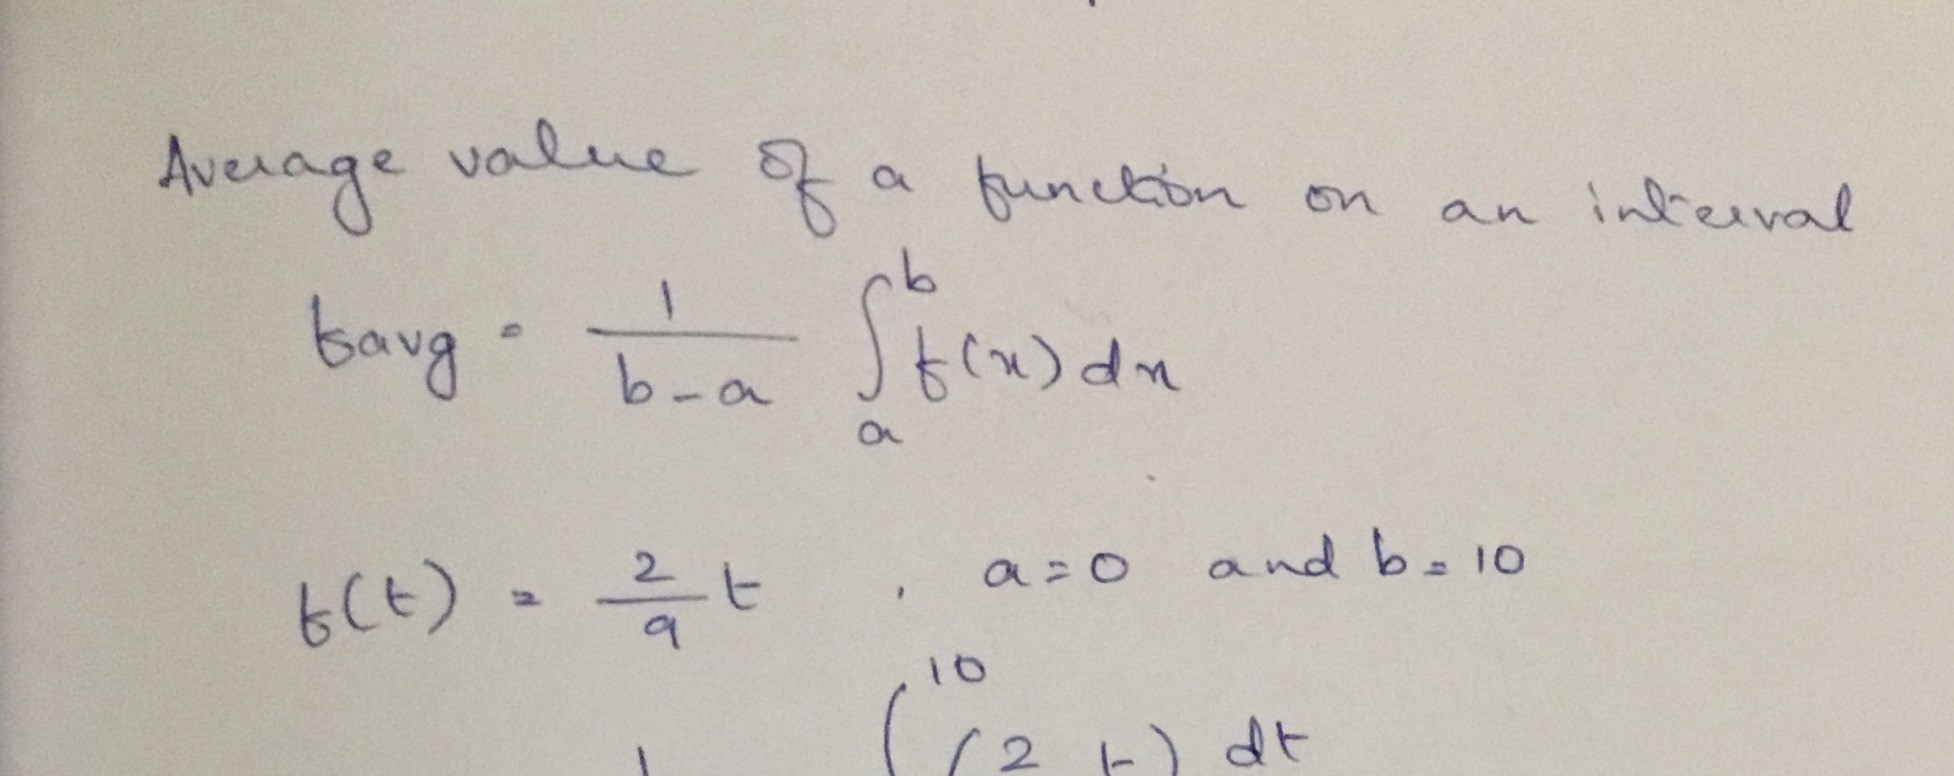 Average value of a function on an interval
favg = 1/(b-a) ∫_a^b f(x) dx
f(t) = 2/9 t , a=0 and b=10
1 ∫^10 (2 t) dt